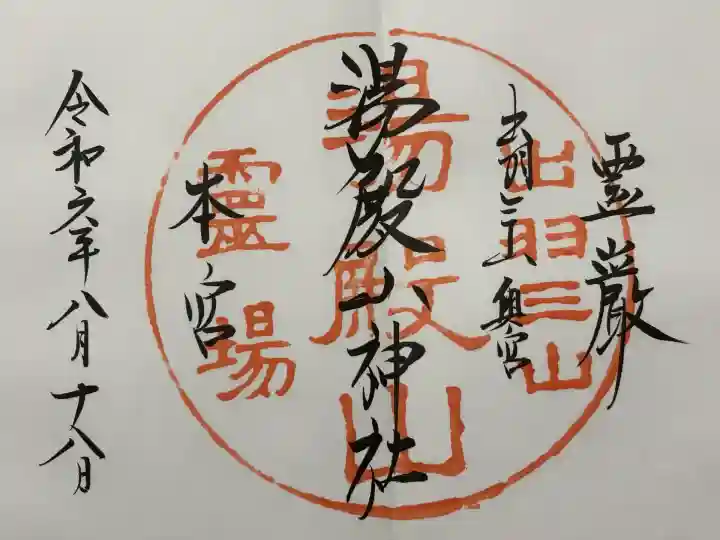 霊厳
出羽三山奥宮
湯殿山神社
本宮
令和六年八月十八日
出羽三山
湯殿山
霊場